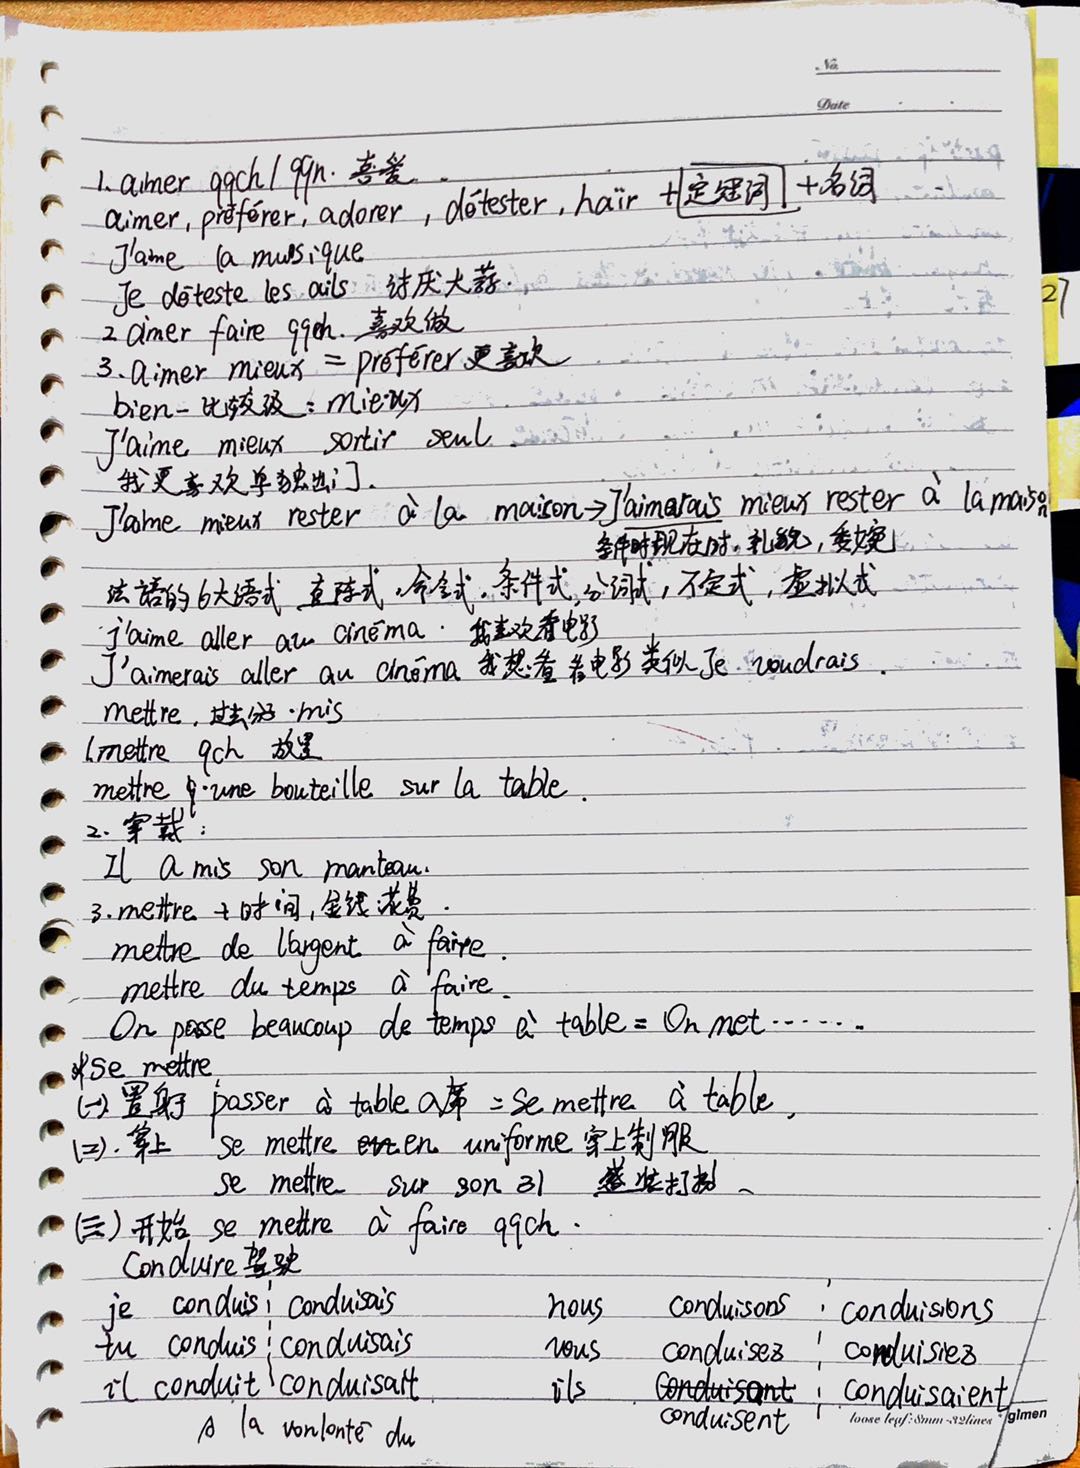 No
Date
1. aimer qqch / qqn. 喜爱
aimer, préférer, adorer, détester, haïr + 定冠词 + 名词
J'aime la musique
Je déteste les ails 讨厌大蒜.
2 aimer faire qqch. 喜欢做
3. aimer mieux = préférer 更喜欢
bien - 比较级: mieux
J'aime mieux sortir seul.
我更喜欢单独出门.
J'aime mieux rester à la maison → J'aimerais mieux rester à la maison
条件时现在时. 礼貌, 委婉
法語的6大语式 直陈式. 命令式. 条件式, 分词式, 不定式, 虚拟式
j'aime aller au cinéma. 我喜欢看电影
J'aimerais aller au cinéma 我想看看电影 类似Je voudrais.
mettre, 过去分 · mis
1. mettre qch 放置
mettre une bouteille sur la table.
2. 穿戴:
Il a mis son manteau.
3. mettre + 时间, 金钱 花费.
mettre de l'argent à faire.
mettre du temps à faire.
On passe beaucoup de temps à table = On met ……
*Se mettre
(一) 置身于 passer à table 入席 = Se mettre à table,
(二). 穿上 se mettre en uniforme 穿上制服
se mettre sur son 31 盛装打扮、
(三) 开始 se mettre à faire qqch.
Conduire 驾驶
je conduis conduisais nous conduisons conduisions
tu conduis conduisais vous conduisez conduisiez
il conduit conduisait ils conduisant conduisaient
conduisent
loose leaf: 8mm-32lines glmen
A la vonlonté du